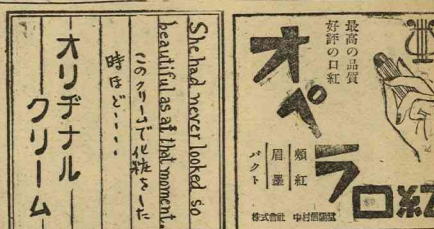 最高の品質
好評の口紅
オペラ
口紅
頬紅
眉墨
パクト
株式會社 中村信陽堂
She had never looked so
beautiful as at that moment.
このクリームで化粧をした
時ほど・・・・
オリヂナル
クリーム